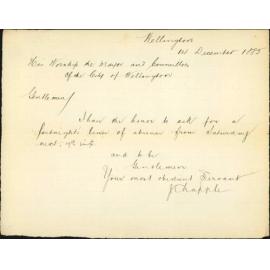 Wellington
1st December 1885
His Worship the Mayor and Councillors
of the City of Wellington
Gentlemen/
I have the honor to ask for a
fortnights leave of absence from Saturday
next, inst
and to be
Gentlemen
Your most obedient Servant
J Chapple